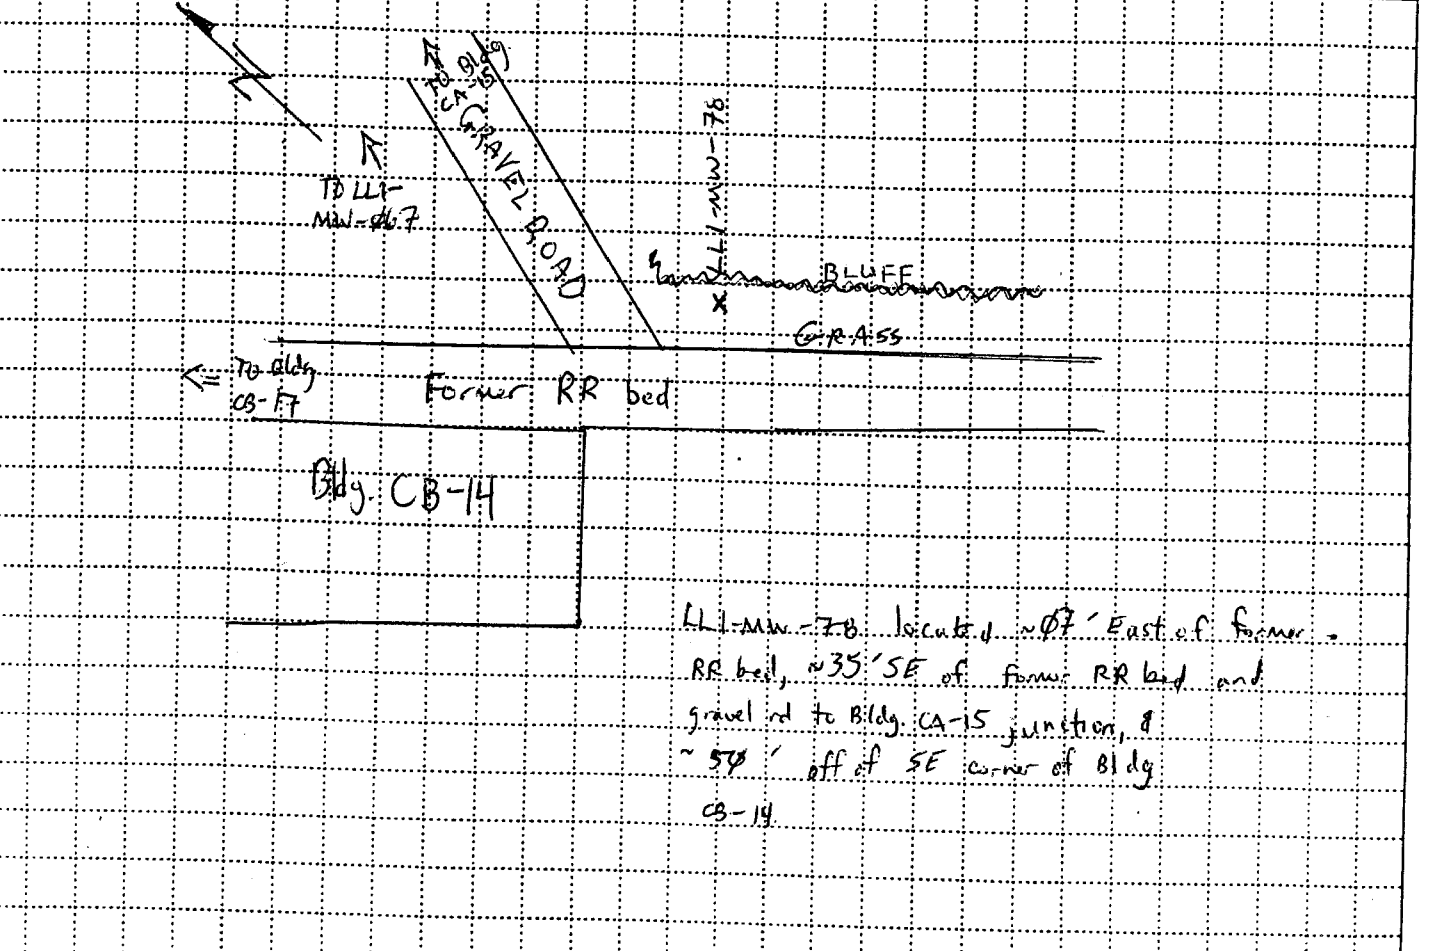 N
TO Bldg
CA-15
GRAVEL ROAD
LL1-MW-78
TO LL1-
MW-Ø67
BLUFF
x
GRASS
TO Bldg
CB-17
Former RR bed
Bldg. CB-14
LL1-MW-78 located ~Ø7' East of former
RR bed, ~35' SE of former RR bed and
gravel rd to Bldg. CA-15 junction, &
~5Ø' off of SE corner of Bldg
CB-14